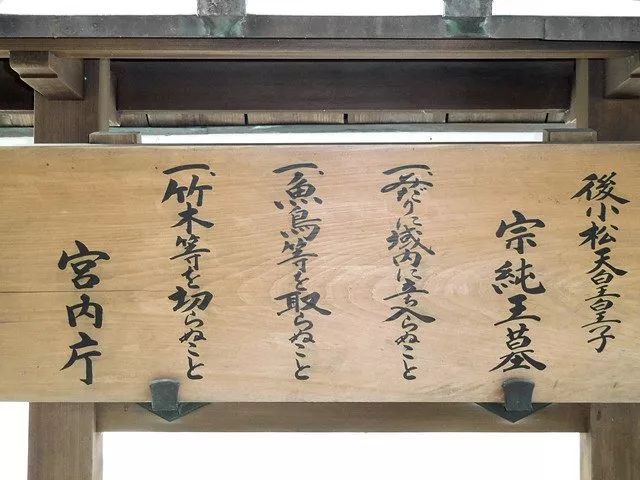 後小松天皇皇子
宗純王墓
一、みだりに域内に立ち入らぬこと
一、魚鳥等を取らぬこと
一、竹木等を切らぬこと
宮内庁